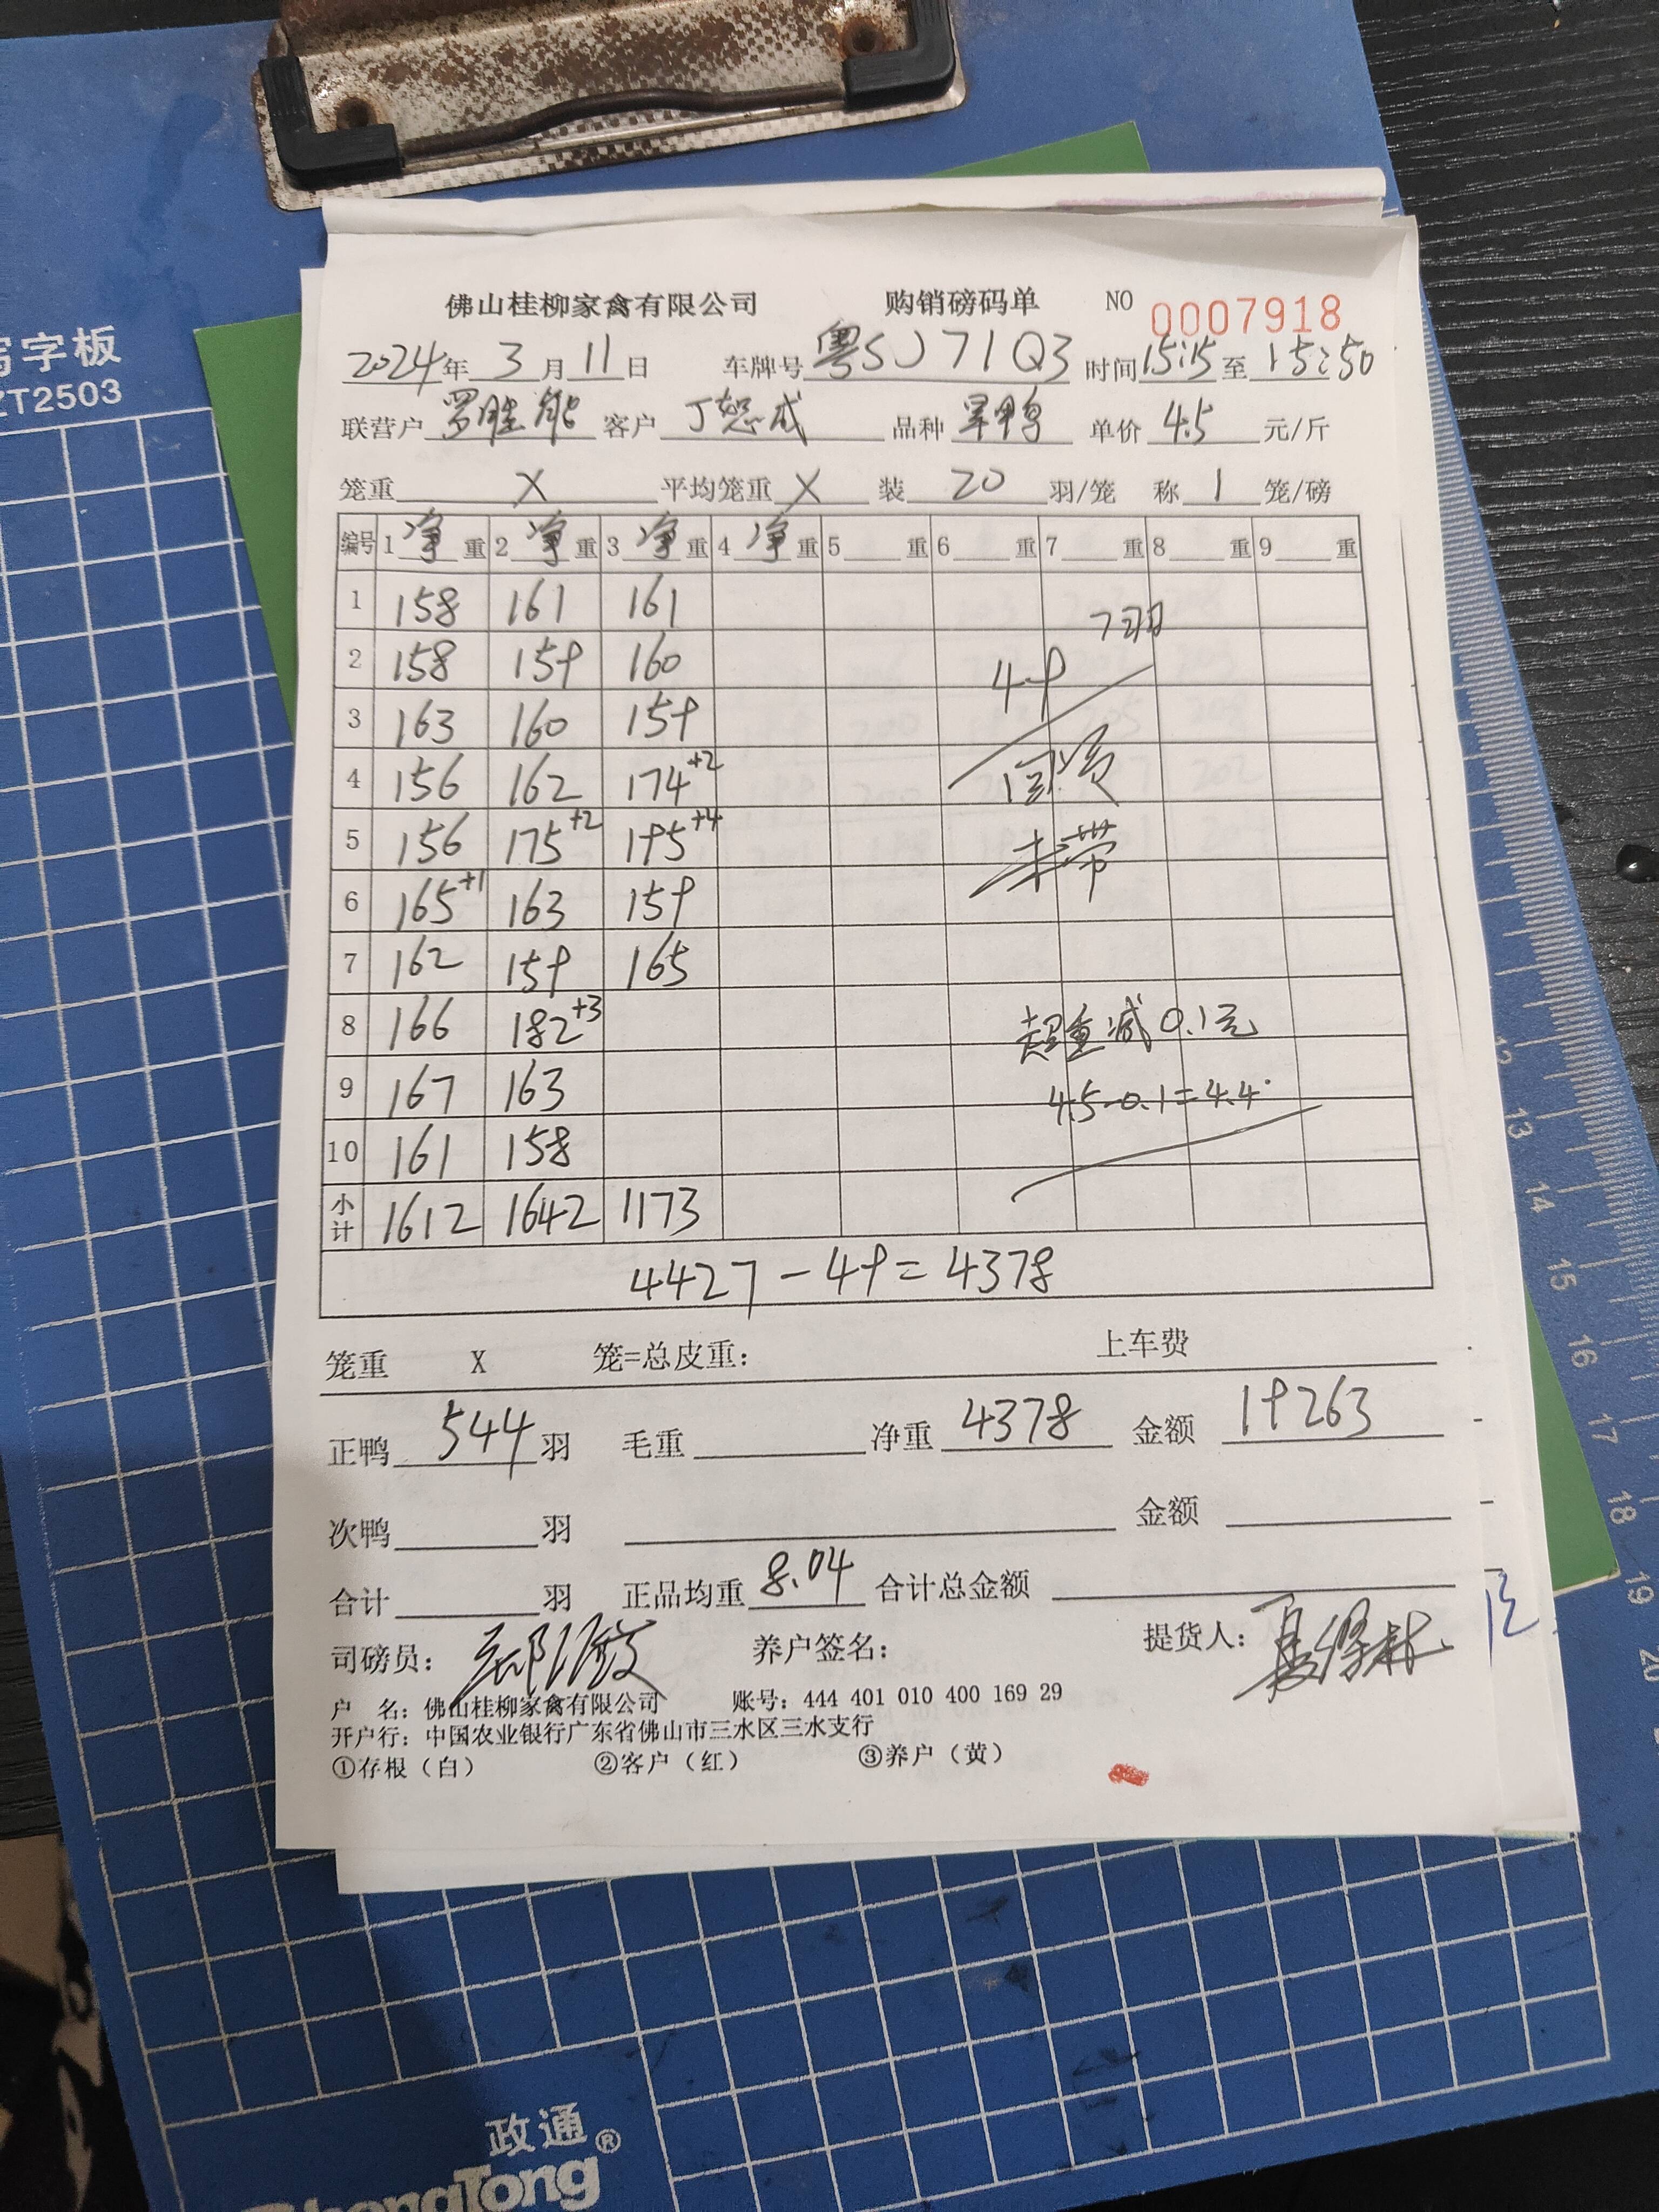 写字板
ZT2503
佛山桂柳家禽有限公司 购销磅码单 NO 0007918
2024年 3月11日 车牌号 粤SJ71Q3 时间15:15至15:50
联营户 罗胜能 客户 丁恕成 品种 旱鸭 单价 4.5 元/斤
笼重 X 平均笼重 X 装 20 羽/笼 称 1 笼/磅
编号 1净重 2净重 3净重 4净重 5 重 6 重 7 重 8 重 9 重
1 158 161 161
7羽
2 158 159 160
49
3 163 160 159
4 156 162 174+2
5 156 175+2 195+4
未带
6 165+1 163 159
7 162 159 165
8 166 182+3
超重减0.1元
9 167 163
4.5-0.1=4.4
10 161 158
小计 1612 1642 1173
4427-49=4378
笼重 X 笼=总皮重: 上车费
正鸭 544 羽 毛重 净重 4378 金额 19263
次鸭 羽 金额
合计 羽 正品均重 8.04 合计总金额
司磅员: 养户签名: 提货人:
户 名: 佛山桂柳家禽有限公司 账号: 444 401 010 400 169 29
开户行: 中国农业银行广东省佛山市三水区三水支行
①存根(白) ②客户(红) ③养户(黄)
12
13
14
15
16
17
18
19
20
政通®
ZhengTong